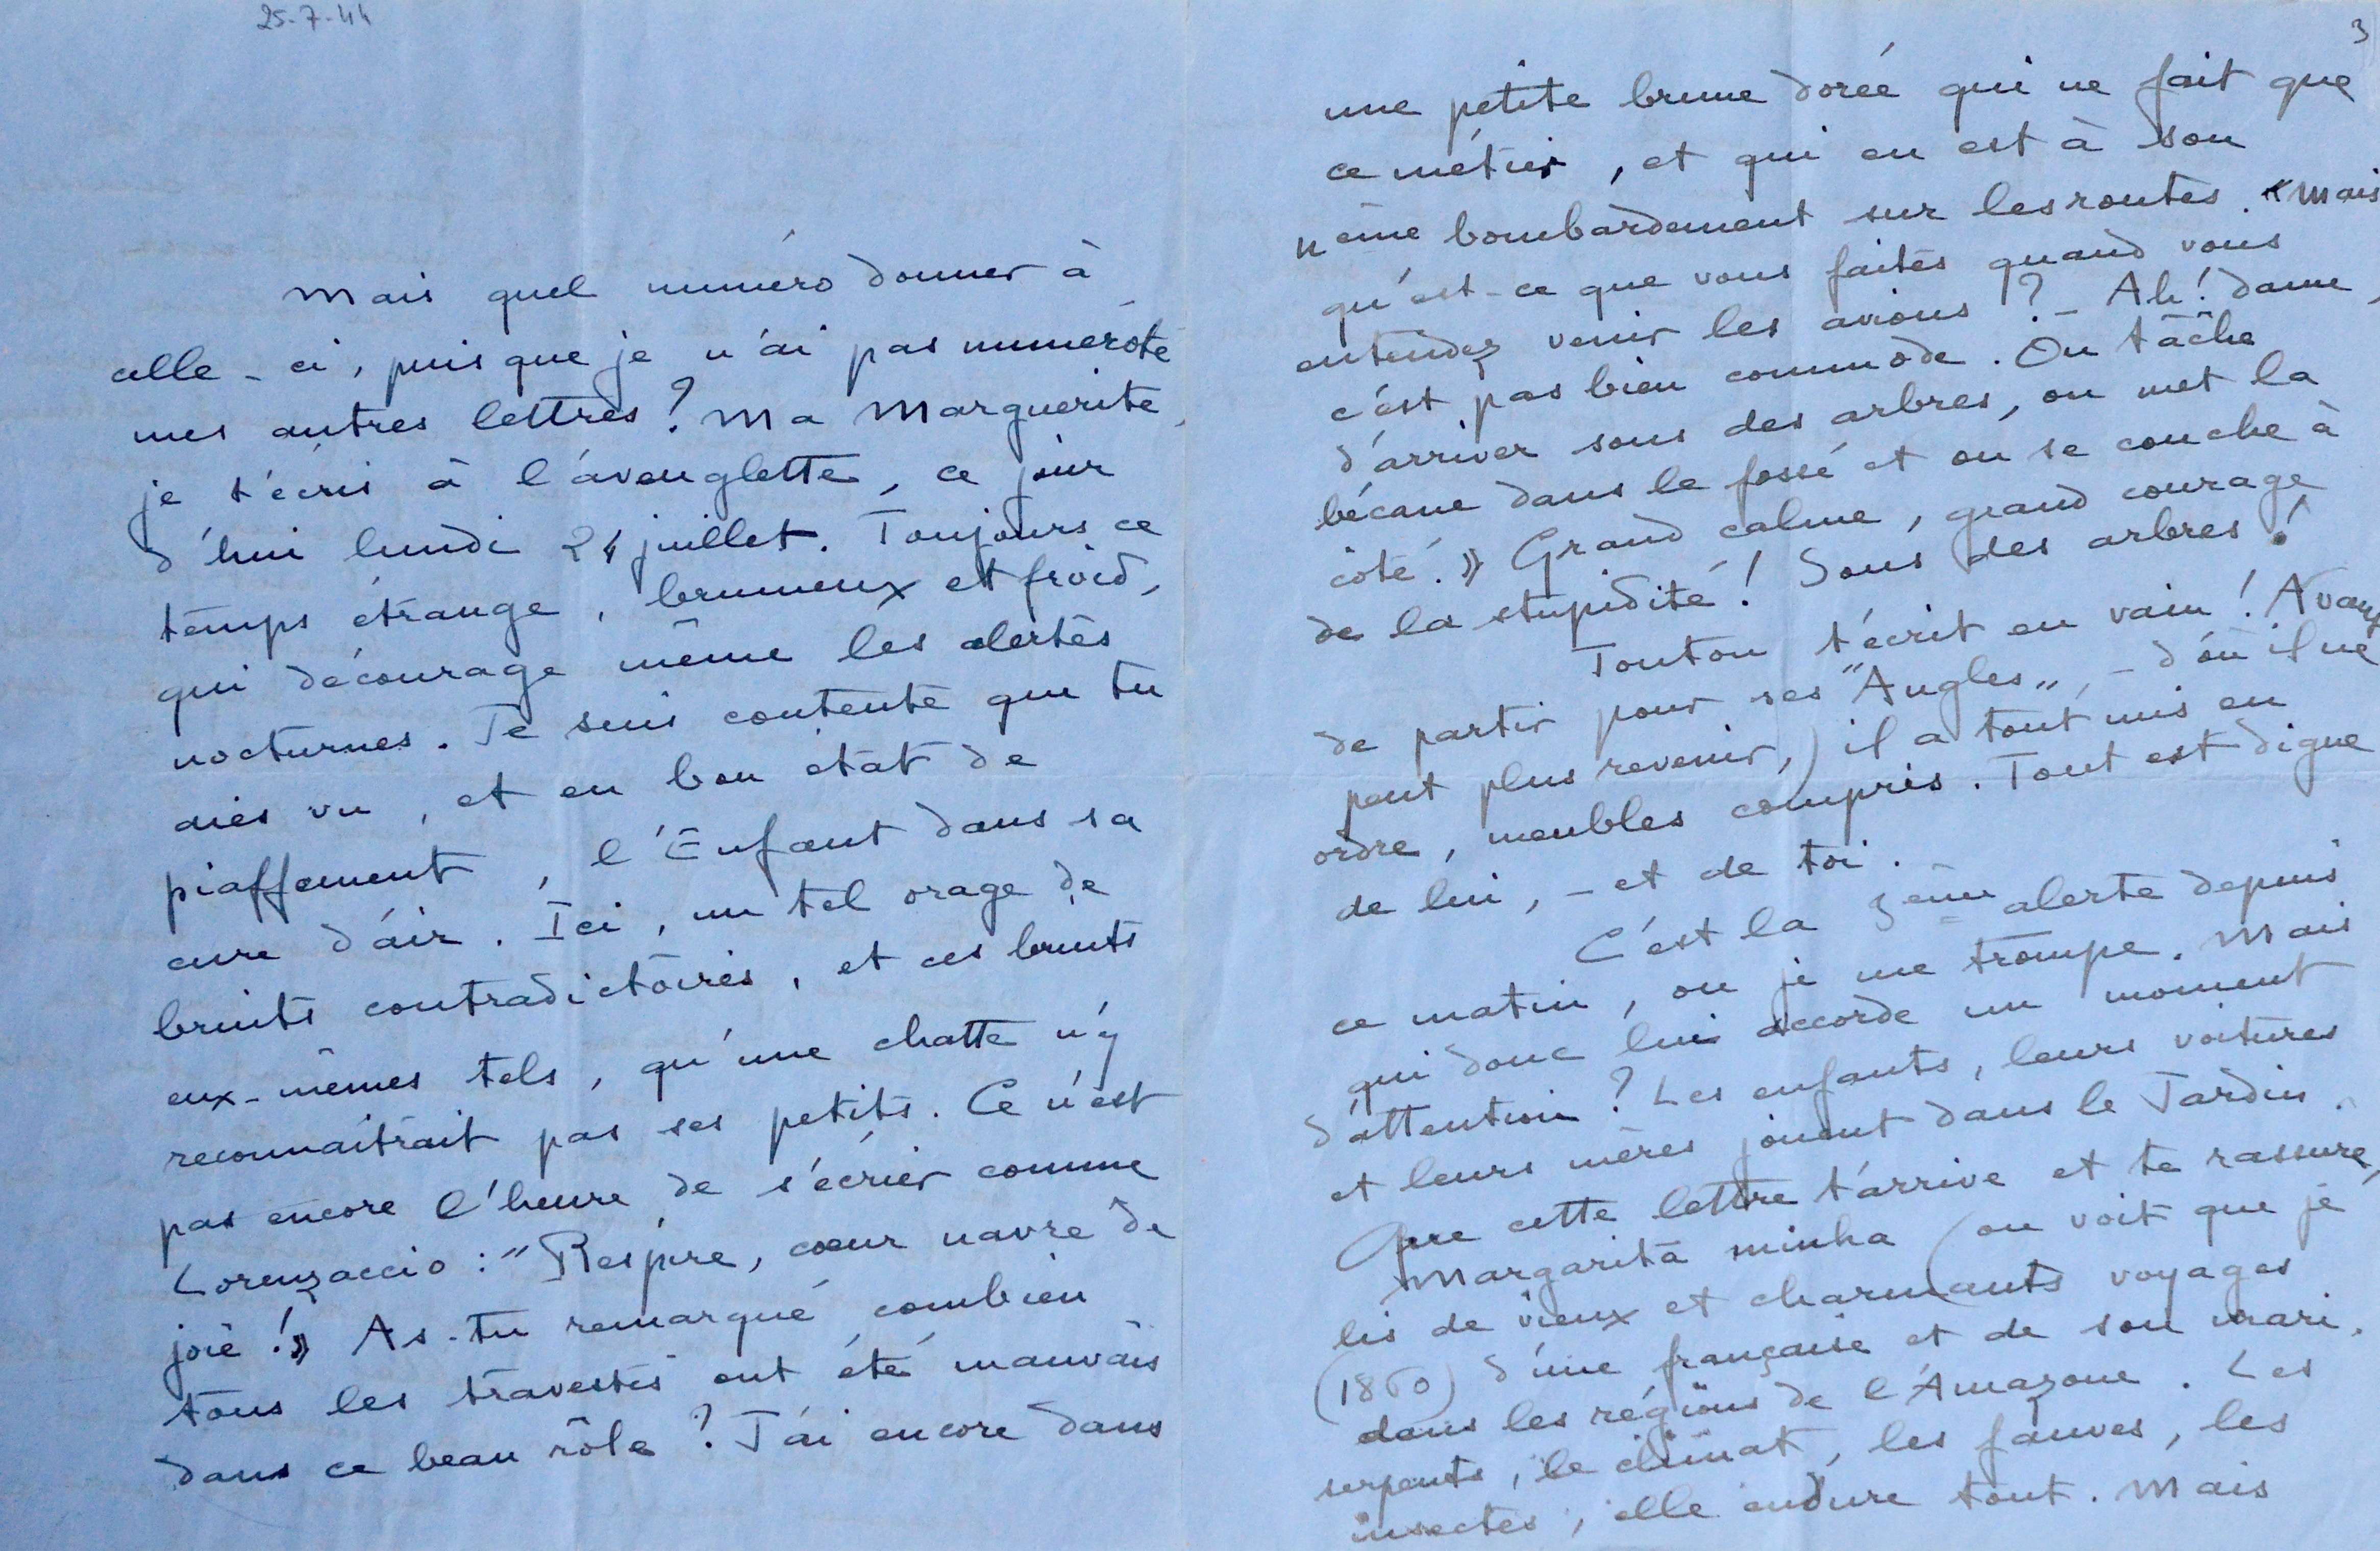 25-7-44
Mais quel numéro donner à
celle-ci, puisque je n'ai pas numéroté
mes autres lettres? Ma Marguerite,
je t'écris à l'aveuglette, ce jour
d'hui lundi 24 juillet. Toujours ce
temps étrange, brumeux et froid,
qui décourage même les alertes
nocturnes. Je suis contente que tu
aies vu, et en bon état de
piaffement, l'Enfant dans sa
cure d'air. Ici, un tel orage de
bruits contradictoires, et ces bruits
eux-mêmes tels, qu'une chatte n'y
reconnaîtrait pas ses petits. Ce n'est
pas encore l'heure de s'écrier comme
Lorenzaccio : "Respire, cœur navré de
joie !» As-tu remarqué combien
tous les travestis ont été mauvais
dans ce beau rôle? J'ai encore dans
3
une petite brune dorée qui ne fait que
ce métier, et qui en est à son
nème bombardement sur les routes. «Mais
qu'est-ce que vous faites quand vous
entendez venir les avions ? - Ah! dame,
c'est pas bien commode. On tâche
d'arriver sous des arbres, on met la
bécane dans le fossé et on se couche à
côté.» Grand calme, grand courage
de la stupidité! Sous des arbres!
Touton t'écrit en vain! Avant
de partir pour ses "Angles", - d'où il ne
peut plus revenir,) il a tout mis en
ordre, meubles compris. Tout est digne
de lui, - et de toi.
C'est la 3ème alerte depuis
ce matin, ou je me trompe. Mais
qui donc lui accorde un moment
d'attention? Les enfants, leurs voitures
et leurs mères jouent dans le Jardin.
Que cette lettre t'arrive et te rassure,
Margarita minha (on voit que je
lis de vieux et charmants voyages
(1860) d'une française et de son mari,
dans les régions de l'Amazone. Les
serpents, le climat, les fauves, les
insectes, elle endure tout. Mais